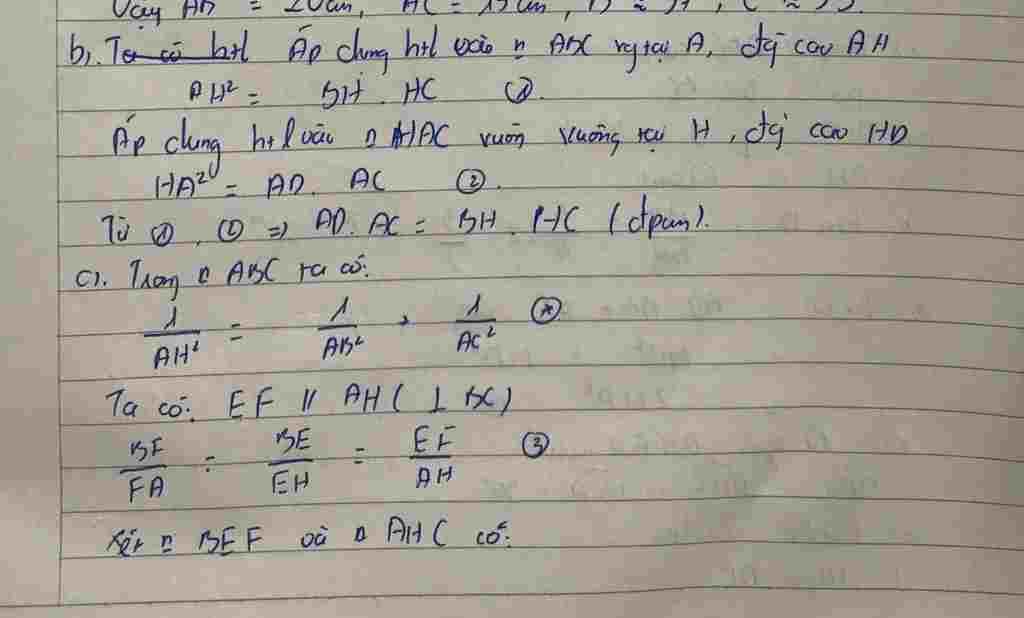 Vậy AB = 20cm, AC = 15cm,
b). Ta có htl Áp dụng htl vào △ ABC vg tại A, đg cao AH
AH² = BH . HC ①.
Áp dụng htl vào △ AHAC vuôn vuông tại H, đg cao HD
HA² = AD. AC ②.
Từ ①, ② => AD. AC = BH . HC (đpcm).
c). Trong △ ABC ta có:
1/AH² = 1/AB² + 1/AC² (*)
Ta có: EF // AH ( ⊥ BC)
BF/FA = BE/EH = EF/AH ③
Xét △ BEF và △ AHC có: